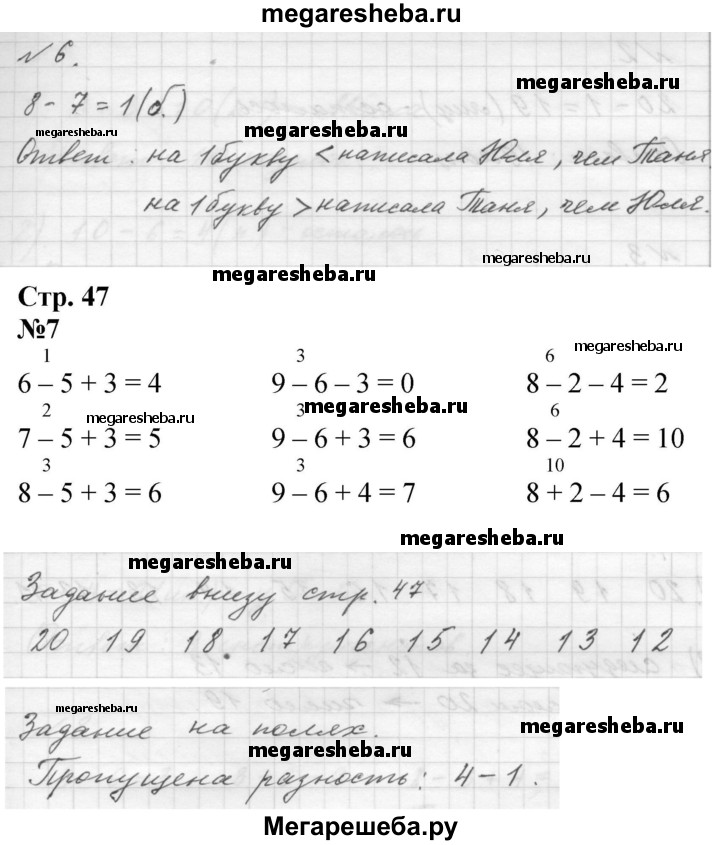 megaresheba.ru
№ 6.
megaresheba.ru
8 - 7 = 1 (б.)
megaresheba.ru megaresheba.ru
Ответ : на 1 букву < написала Юля, чем Таня
на 1 букву > написала Таня, чем Юля.
megaresheba.ru megaresheba.ru
Стр. 47
№7
megaresheba.ru
1 3 6
6 – 5 + 3 = 4 9 – 6 – 3 = 0 8 – 2 – 4 = 2
megaresheba.ru megaresheba.ru
2 3 6
7 – 5 + 3 = 5 9 – 6 + 3 = 6 8 – 2 + 4 = 10
3 3 10
8 – 5 + 3 = 6 9 – 6 + 4 = 7 8 + 2 – 4 = 6
megaresheba.ru megaresheba.ru
Задание внизу стр. 47
20 19 18 17 16 15 14 13 12
megaresheba.ru
Задание на полях.
megaresheba.ru megaresheba.ru
Пропущена разность : 4 - 1 .
Мегарешеба.ру